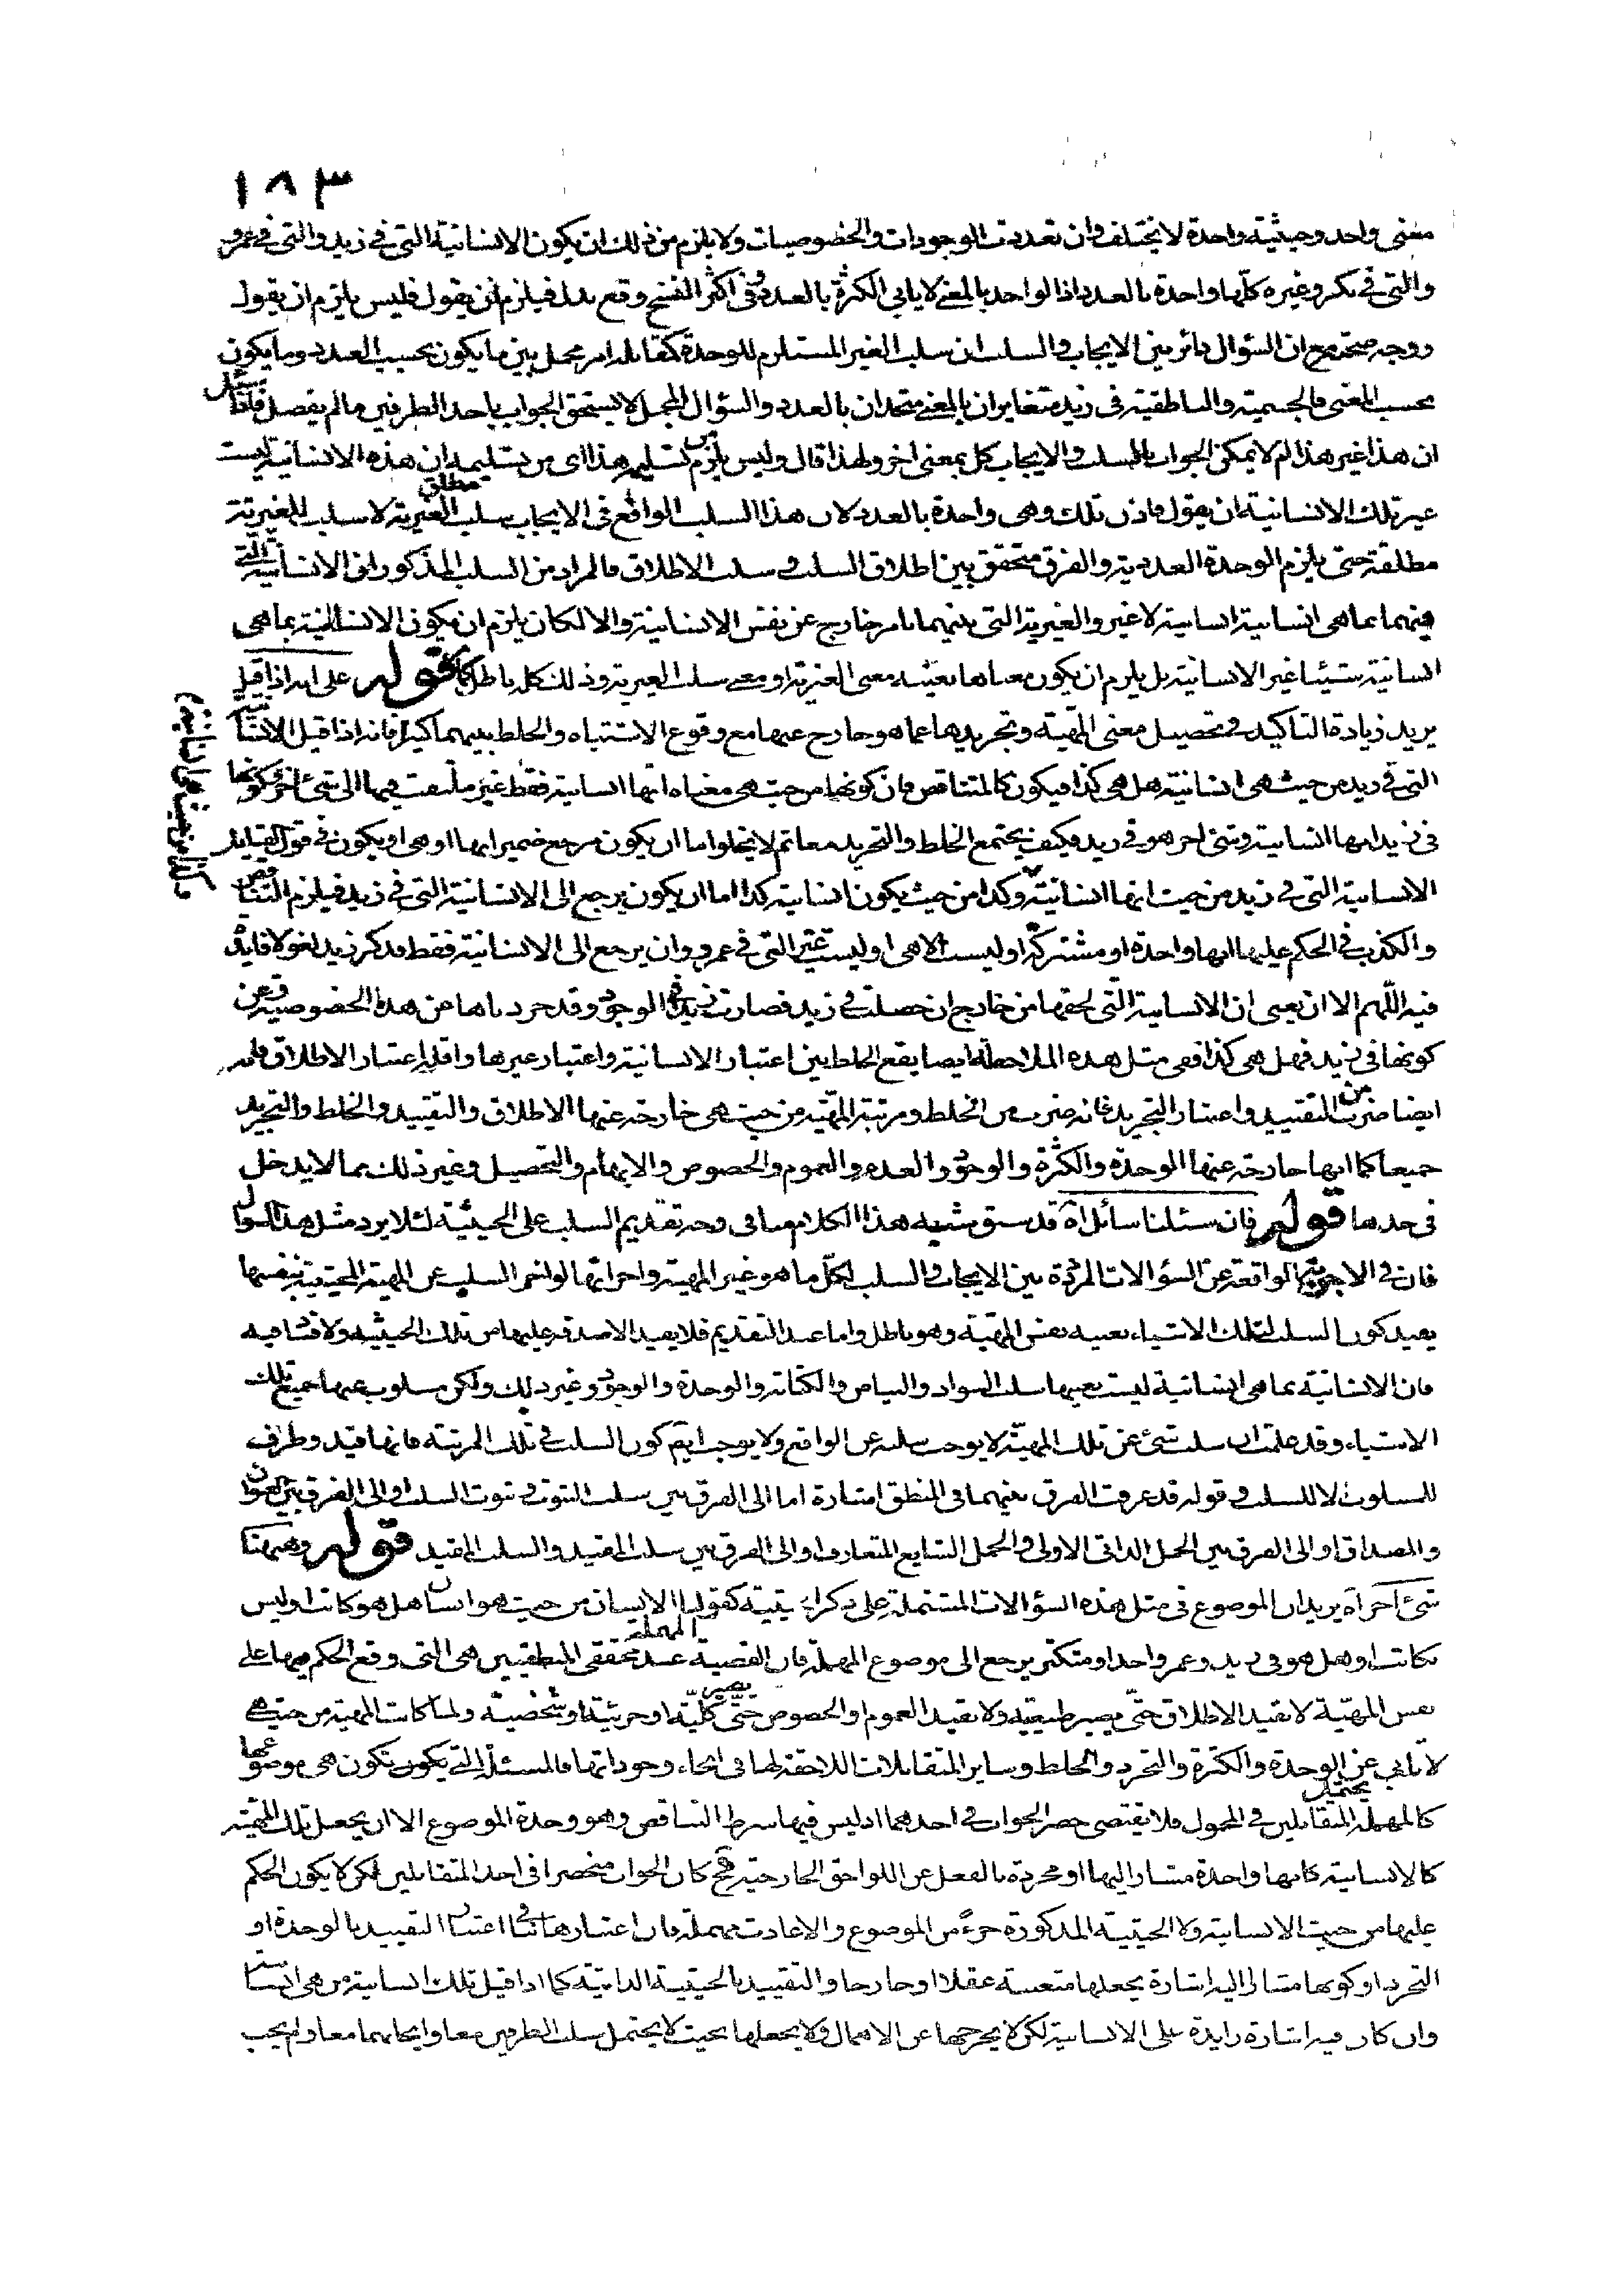 ١٨٣
معنى واحد وحيثية واحدة لا يختلف وان تعددت الوجودات والخصوصيات ولا يلزم من ذلك ان يكون الانسانية التي في زيد والتي في عمرو
والتي في بكر وغيره كلها واحدة بالعدد اذ الواحد بالمعنى لا يابى الكثرة بالعدد وفي اكثر النسخ وقع بدل فيلزم ان يقول فليس يلزم ان يقول
ووجه صحته ان السؤال دائر بين الايجاب والسلب ان سلب الغير المستلزم للوحدة كمقابله امر مجمل بين ما يكون بحسب العدد وما يكون
بحسب المعنى فالجسمية والناطقية في زيد متغايران بالمعنى متحدان بالعدد والسؤال المجمل لا يستحق الجواب باحد الطرفين ما لم يفصل فاذا سئل
ان هذا غير هذا ام لا يمكن الجواب بالسلب والايجاب كل بمعنى اخر ولهذا قال وليس يلزم من تسليم هذا اي من تسليمه ان هذه الانسانية ليست
غير تلك الانسانية ان يقول فاذن تلك وهي واحدة بالعدد لان هذا السلب الواقع في الايجاب سلب مطلق الغيرية لا سلب للغيرية
مطلقة حتى يلزم الوحدة العددية والفرق متحقق بين اطلاق السلب وسلب الاطلاق فالمراد من السلب المذكور ان الانسانية التي
فيهما بما هي انسانية انسانية لا غير والغيرية التي بينهما بامر خارج عن نفس الانسانية والا لكان يلزم ان يكون الانسانية بما هي
انسانية شيئا غير الانسانية بل يلزم ان يكون معناها بعينه معنى الغيرية او معنى سلب الغيرية وذلك كله باطل قوله على انه اذا قيل
يريد زيادة التاكيد في تحصيل معنى المهية وتجريدها عما هو خارج عنها مع وقوع الاشتباه والخلط بينهما كثيرا فانه اذا قيل الانسانية
التي في زيد من حيث هي انسانية هل هي كذا فيكون كالمتناقض فان كونها من حيث هي معناه انها انسانية فقط غير ملتفت فيها الى شئ اخر وكونها
في زيد انها انسانية وشئ اخر هو في زيد فكيف يجتمع الخلط والتجريد معا ثم لا يخلوا ما ان يكون مرجع ضمير انها او هي او يكون في قول القايل
الانسانية التي في زيد من حيث انها انسانية وكذا من حيث يكون انسانية كذا اما ان يكون يرجع الى الانسانية التي في زيد فيلزم التناقض
والكذب في الحكم عليها انها واحدة او مشتركة او ليست الا هي او ليست غير التي في عمرو وان يرجع الى الانسانية فقط فذكر زيد لغو لا فايدة
فيه اللهم الا ان يعنى ان الانسانية التي لحقها من خارج ان حصلت في زيد فصارت زيدية الوجود وقد جردناها عن هذه الخصوصية وعن
كونها في زيد فهل هي كذا ففي مثل هذه الملاحظة ايضا يقع الخلط بين اعتبار الانسانية واعتبار غيرها واقله اعتبار الاطلاق فانه
ايضا ضرب من التقييد واعتبار التجريد فانه ضرب من الخلط ومرتبة المهية من حيث هي خارجة عنها الاطلاق والتقييد والخلط والتجريد
جميعا كما انها خارجة عنها الوحدة والكثرة والوجود والعدم والعموم والخصوص والابهام والتحصيل وغير ذلك مما لا يدخل
في حدها قوله فان سئلنا سائل اه قد سبق شبيه هذا الكلام منا في وجه تقديم السلب على الحيثية لئلا يرد مثل هذا السؤال
فان في الاجوبة الواقعة عن السؤالات المرددة بين الايجاب والسلب لكل ما هو غير المهية واجزائها لو اخر السلب عن المهية المحيثية بنفسها
يفيد كون السلب لتلك الاشياء بعينه نفس المهية وهو باطل واما عند التقديم فلا يفيد الا صدقه عليها من تلك الحيثية ولا فساد فيه
فان الانسانية بما هي انسانية ليست بعينها سلب السواد والبياض والكتابة والوحدة والوجود وغير ذلك ولكن مسلوب عنها جميع تلك
الاشياء وقد علمت ان سلب شئ عن تلك المهية لا يوجب سلبه عن الواقع ولا يوجب ايضا كون السلب في تلك المرتبة فانها قيد وظرف
للمسلوب لا للسلب وقوله قد عرفت الفرق بينهما في المنطق اشارة اما الى الفرق بين سلب الثبوت وثبوت السلب او الى الفرق بين العنوان
والمصداق او الى الفرق بين الحمل الذاتي الاولى والحمل الشايع المتعارف او الى الفرق بين سلب المقيد والسلب المقيد قوله وههنا
شئ اخر اه يريد ان الموضوع في مثل هذه السؤالات المشتملة على ذكر كقولنا الانسان من حيث هو انسان هل هو كاتب او ليس
بكاتب او هل هو في زيد وعمرو واحد او متكثر يرجع الى موضوع المهملة فان القضية المهملة عند محققي المنطقيين هي التي وقع الحكم فيها على
نفس المهية لا بقيد الاطلاق حتى يصير طبيعية ولا بقيد العموم او الخصوص حتى يصير كلية او جزئية او شخصية ولما كانت المهية من حيث هي
لا تابى عن الوحدة والكثرة والتجرد والخلط وساير المتقابلات اللاحقة لها في انحاء وجوداتها فالمسئلة التي يكون هي موضوعها
كالمهملة يحتمل المتقابلين في المحمول فلا يقتضى حصر الجواب في احدهما اذ ليس فيها شرط التناقض وهو وحدة الموضوع الا ان يجعل تلك المهية
كالانسانية كانها واحدة مشار اليها او مجردة بالفعل عن اللواحق الخارجية فح كان الجواب منحصرا في احد المتقابلين لكن لا يكون الحكم
عليها من حيث الانسانية ولا الحيثية المذكورة جزءً من الموضوع والا عادت مهملة فان اعتبارها ينافي اعتبار التقييد بالوحدة او
التجرد او كونها مشارا اليه اشارة يجعلها متعينة عقلا او خارجا والتقييد بالحيثية الذاتية كما اذا قيل تلك انسانية من هي انسانية
وان كان فيه اشارة زايدة على الانسانية لكن لا يخرجها عن الاهمال ولا يجعلها بحيث لا يحتمل سلب الطرفين معا وايجابهما معا ولم يجب